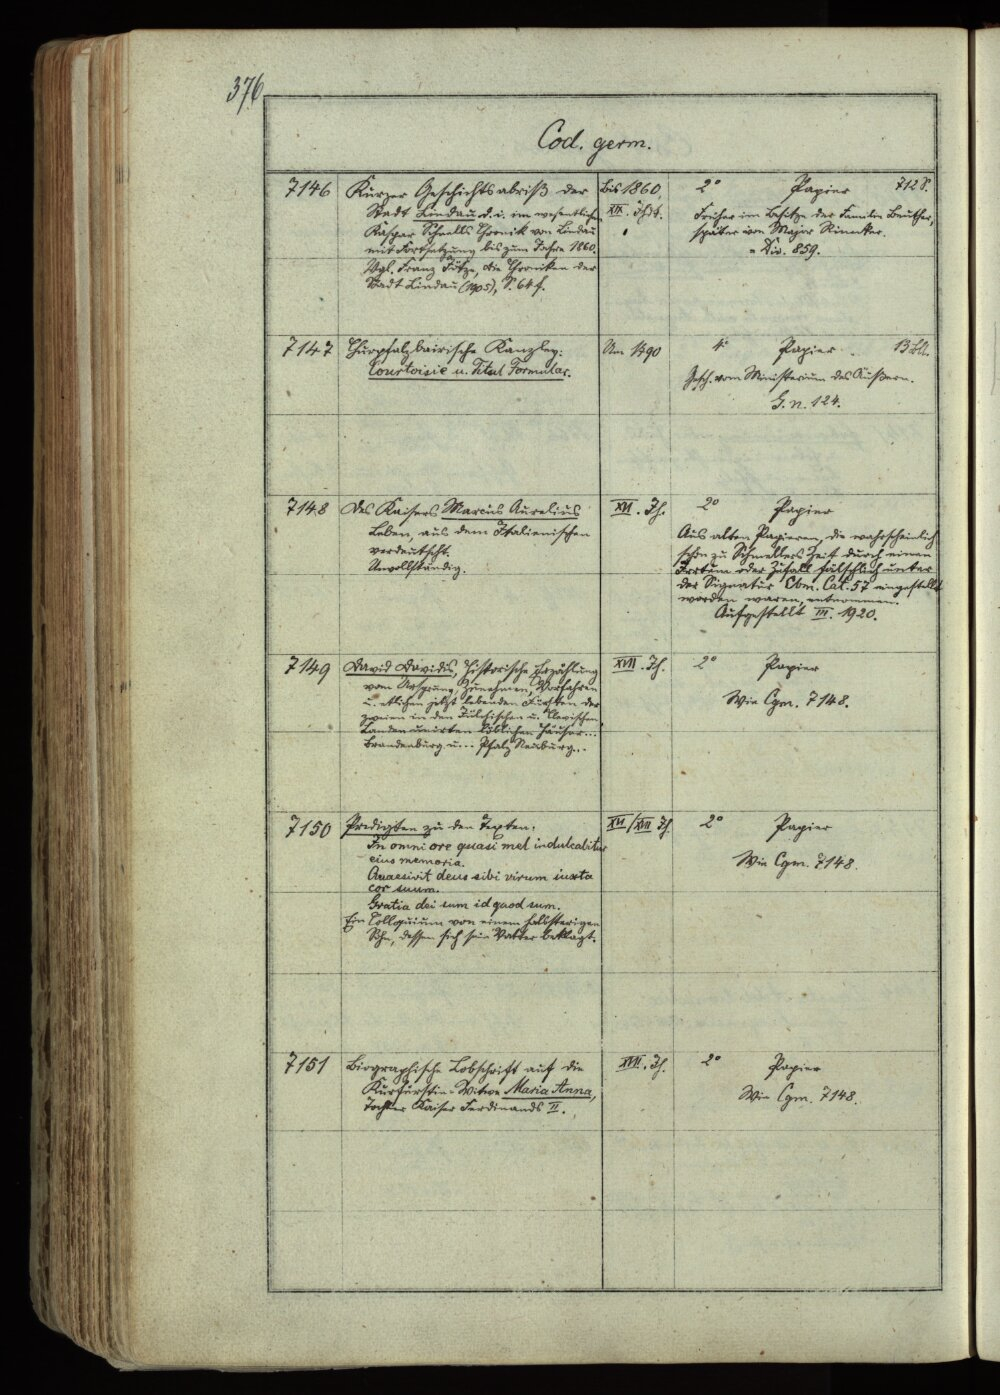 376
Cod. germ.
7146 Kurzer Geschichtsabriß der
Stadt Lindau d. i. im wesentlichen
Kaspar Schnells Chronik von Lindau
mit Fortsetzung bis zum Jahre 1860.
Vgl. Franz Joetze, die Chroniken der
Stadt Lindau (1905), S. 64 f.
Bis 1860,
XIX. Jhdt.
2° Papier 712 S.
Früher im Besitze der Familie
später von Major
= Div. 859.
7147 Churpfalzbairische Kanzley:
Courtoisie u. Titul Formular.
Um 1790
4° Papier 13 Bll.
Gesch. vom Ministerium des Äußern.
G. n. 124.
7148 Des Kaisers Marcus Aurelius
Leben, aus dem Italienischen
verdeutscht.
Unvollständig.
XVI. Jh.
2° Papier
Aus alten Papieren, die wahrscheinlich
schon zu Schmellers Zeit durch einen
Irrtum oder Zufall fälschlich unter
der Signatur Cbm. Cat. 57 eingestellt
worden waren, entnommen.
Aufgestellt III. 1920.
7149 David Davidis, Historische Erzählung
vom Ursprung, Zunehmen, Vorfahren
u. etlichen jetzt lebenden Fürsten der
zweien in den Jülchischen u. Clevischen
Landen unirten löblichen Häuser...
Brandenburg u... Pfalz Neuburg...
XVII. Jh.
2° Papier
Wie Cgm. 7148.
7150 Predigten zu den Texten:
In omni ore quasi mel indulcabitur
eius memoria.
Quaesivit deus sibi virum iuxta
cor suum.
Gratia dei sum id quod sum.
Ein Colloquium von einem halssterrigen
Sohn, dessen sich sein Vatter beklagt.
XVI/XVII Jh.
2° Papier
Wie Cgm. 7148.
7151 Biographische Lobschrift auf die
Kurfürstin-Witwe Maria Anna,
Tochter Kaiser Ferdinands II.
XVII. Jh.
2° Papier
Wie Cgm. 7148.